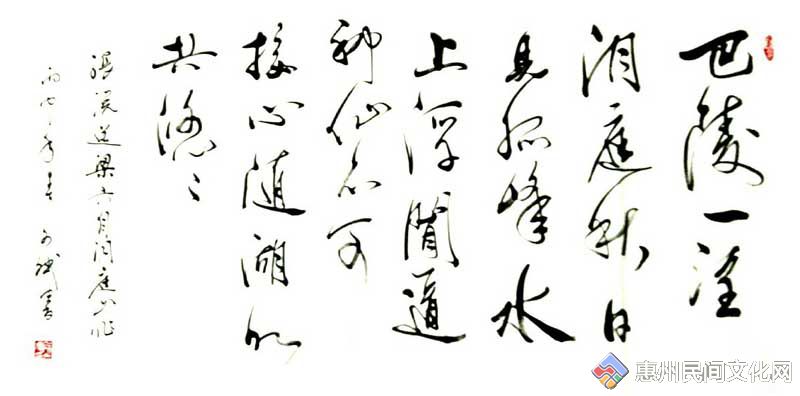 巴陵一望
洞庭秋日
見孤峰水
上浮聞道
神仙不可
接心随湖水
共悠々
張説送梁六自洞庭山作
年春 書
惠州民间文化网